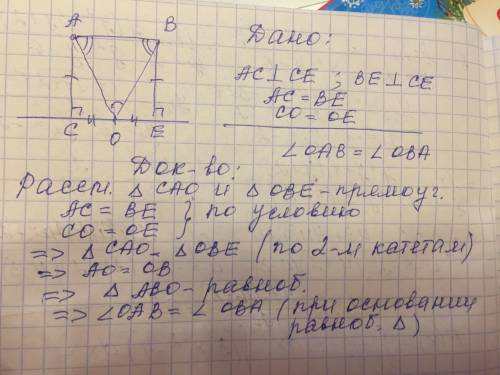 A
B
C
O
E
Дано:
AC⊥CE ; BE⊥CE
AC = BE
CO = OE
∠OAB = ∠OBA
Док-во:
Рассм. △ CAO и △ OBE - прямоуг.
AC = BE } по условию
CO = OE }
=> △ CAO = △ OBE (по 2-м катетам)
=> AO = OB
=> △ ABO - равноб.
=> ∠OAB = ∠ OBA (при основании
равноб. △)